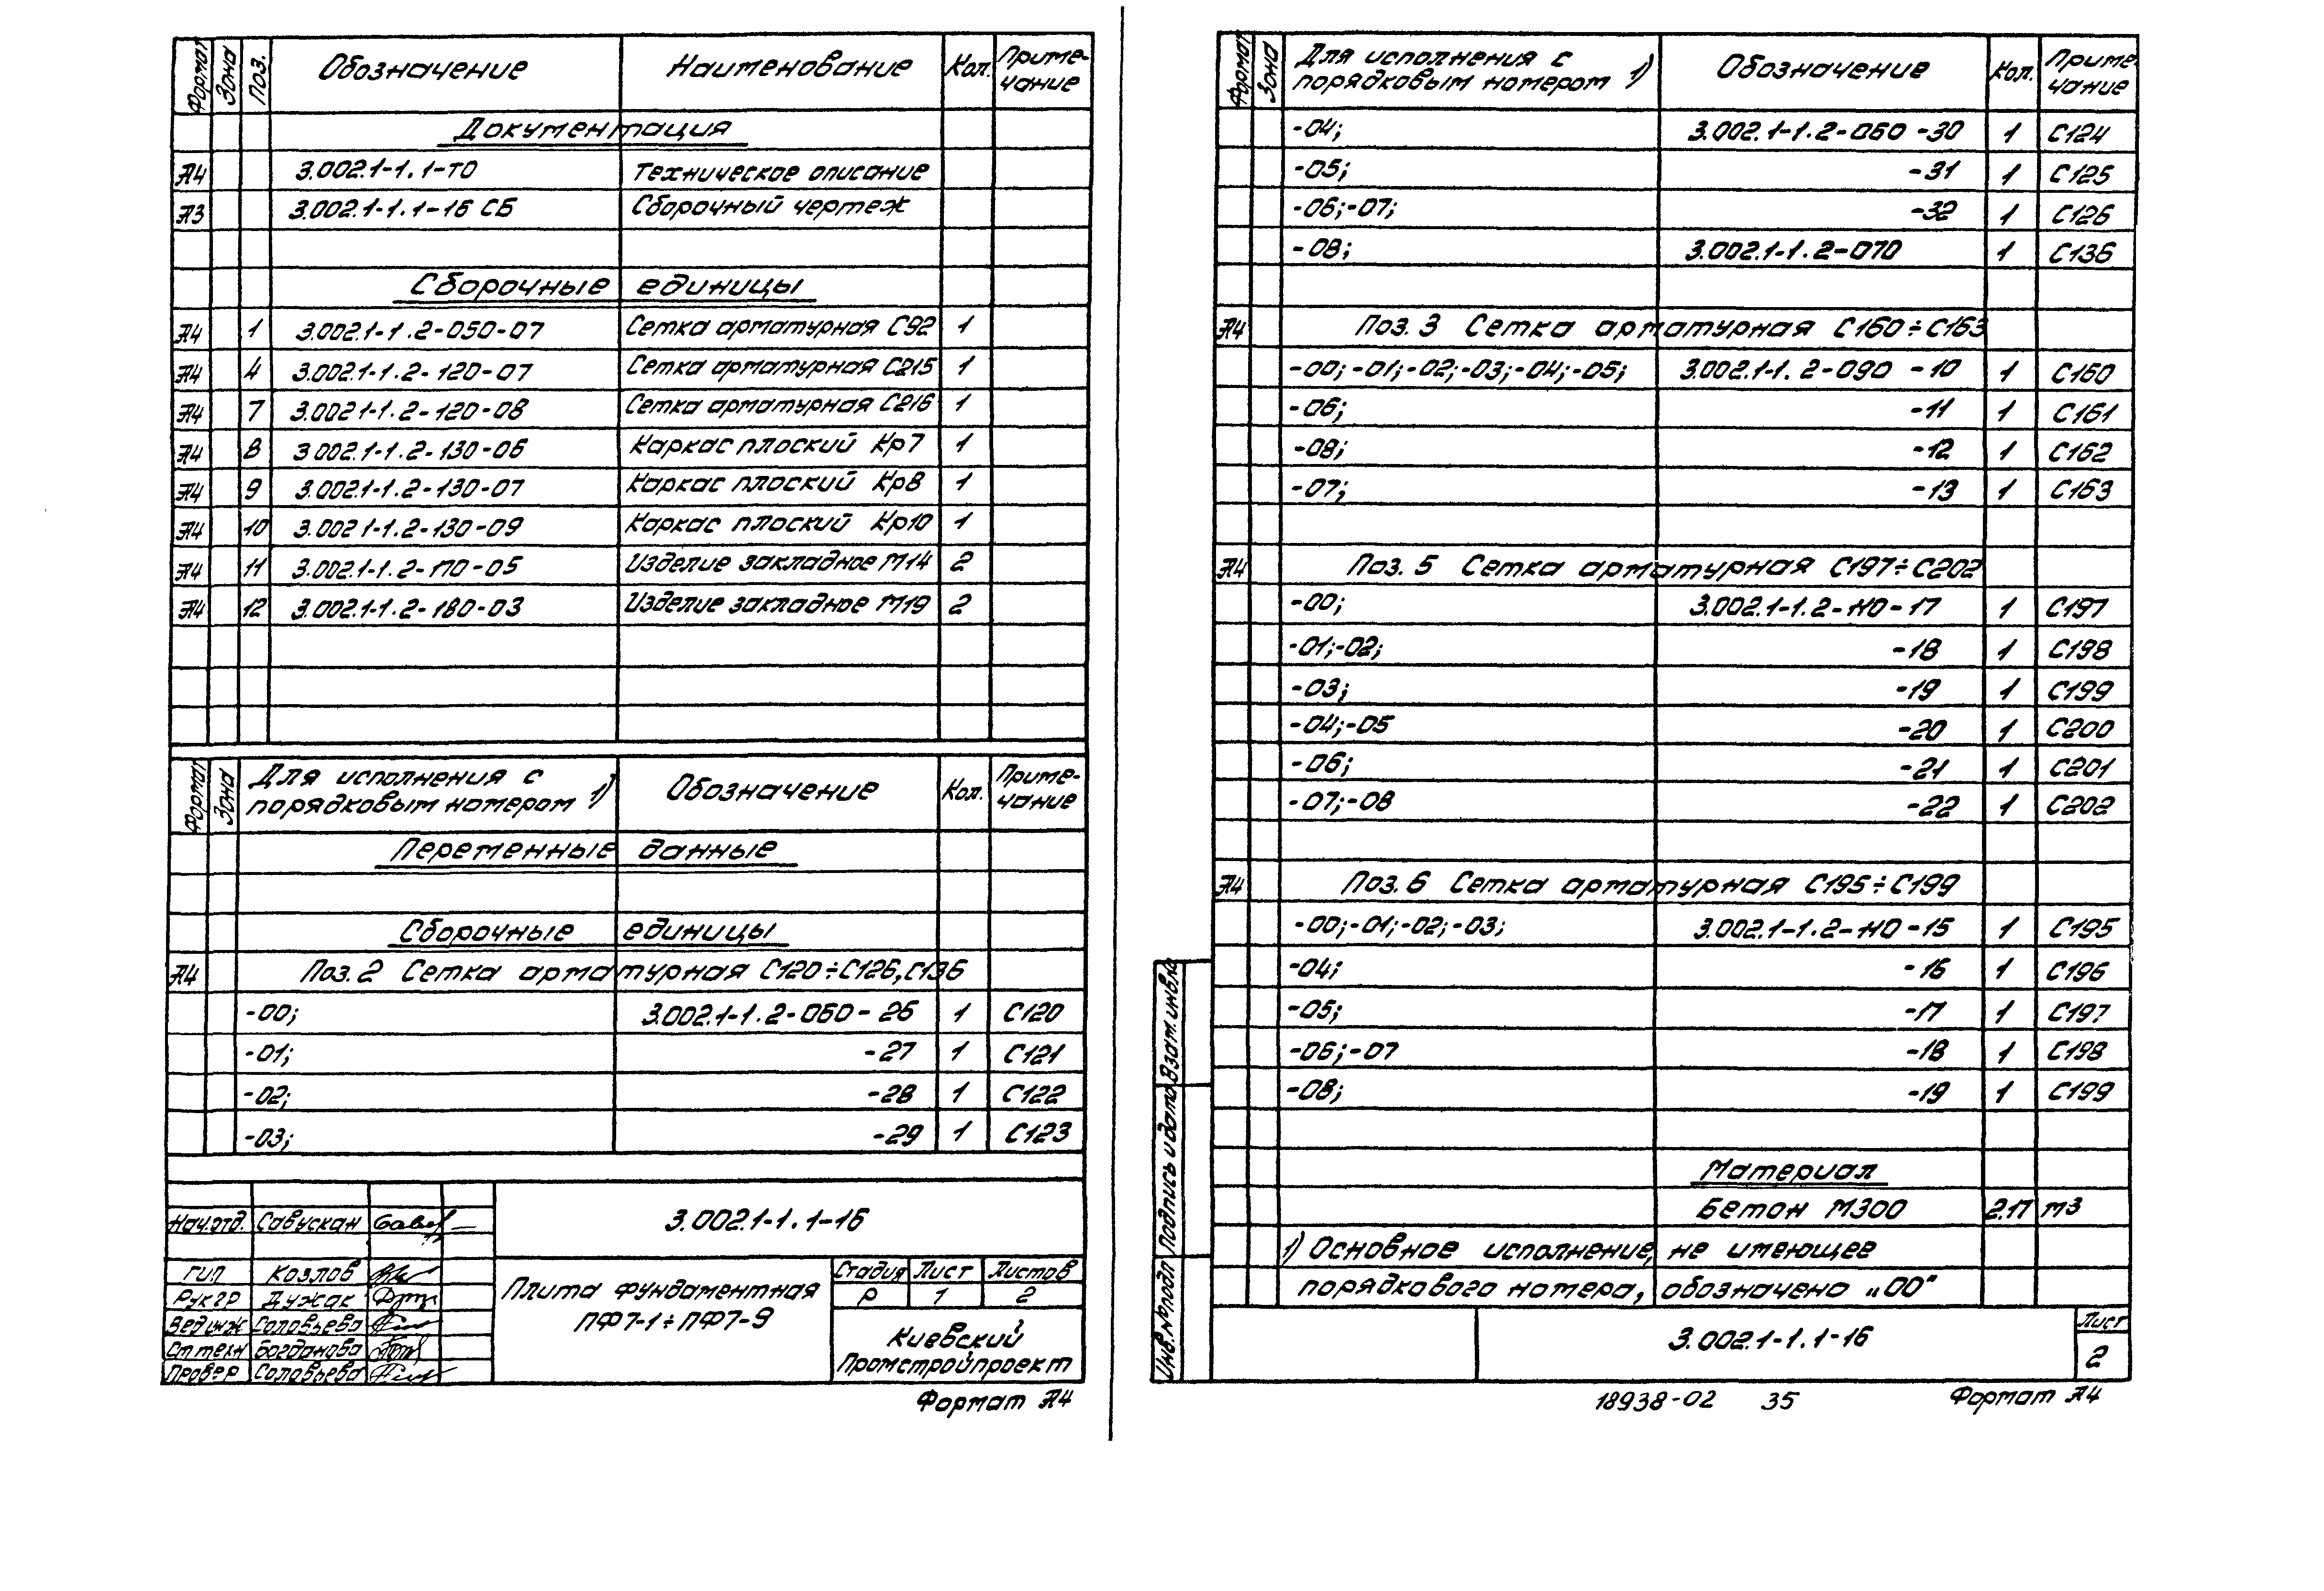 Формат Зона Поз. Обозначение Наименование Кол. Приме-
чание
Документация
А4 3.002.1-1.1-ТО Техническое описание
А3 3.002.1-1.1-16 СБ Сборочный чертеж
Сборочные единицы
А4 1 3.002.1-1.2-050-07 Сетка арматурная С92 1
А4 4 3.002.1-1.2-120-07 Сетка арматурная С215 1
А4 7 3.002.1-1.2-120-08 Сетка арматурная С216 1
А4 8 3.002.1-1.2-130-06 Каркас плоский Кр7 1
А4 9 3.002.1-1.2-130-07 Каркас плоский Кр8 1
А4 10 3.002.1-1.2-130-09 Каркас плоский Кр10 1
А4 11 3.002.1-1.2-170-05 Изделие закладное М14 2
А4 12 3.002.1-1.2-180-03 Изделие закладное М19 2
Формат Зона Для исполнения с
порядковым номером 1) Обозначение Кол. Приме-
чание
Переменные данные
Сборочные единицы
А4 Поз. 2 Сетка арматурная С120÷С126, С136
-00; 3.002.1-1.2-060-26 1 С120
-01; -27 1 С121
-02; -28 1 С122
-03; -29 1 С123
Нач.отд. Савускан
ГИП Козлов
Рук гр Дужак
Вед инж Соловьева
Ст техн Богданова
Провер Соловьева
3.002.1-1.1-16
Плита фундаментная
ПФ7-1÷ПФ7-9
Стадия Лист Листов
Р 1 2
Киевский
Промстройпроект
Формат А4
Формат Зона Для исполнения с
порядковым номером 1) Обозначение Кол. Приме-
чание
-04; 3.002.1-1.2-060-30 1 С124
-05; -31 1 С125
-06;-07; -32 1 С126
-08; 3.002.1-1.2-070 1 С136
А4 Поз. 3 Сетка арматурная С160÷С163
-00;-01;-02;-03;-04;-05; 3.002.1-1.2-090-10 1 С160
-06; -11 1 С161
-08; -12 1 С162
-07; -13 1 С163
А4 Поз. 5 Сетка арматурная С197÷С202
-00; 3.002.1-1.2-110-17 1 С197
-01;-02; -18 1 С198
-03; -19 1 С199
-04;-05 -20 1 С200
-06; -21 1 С201
-07;-08 -22 1 С202
А4 Поз. 6 Сетка арматурная С195÷С199
-00;-01;-02;-03; 3.002.1-1.2-110-15 1 С195
-04; -16 1 С196
-05; -17 1 С197
-06;-07 -18 1 С198
-08; -19 1 С199
Материал
Бетон М300 2.17 м3
1) Основное исполнение, не имеющее
порядкового номера, обозначено „00"
Инв.№подл Подпись и дата Взам.инв.№
3.002.1-1.1-16
Лист
2
18938-02 35 Формат А4